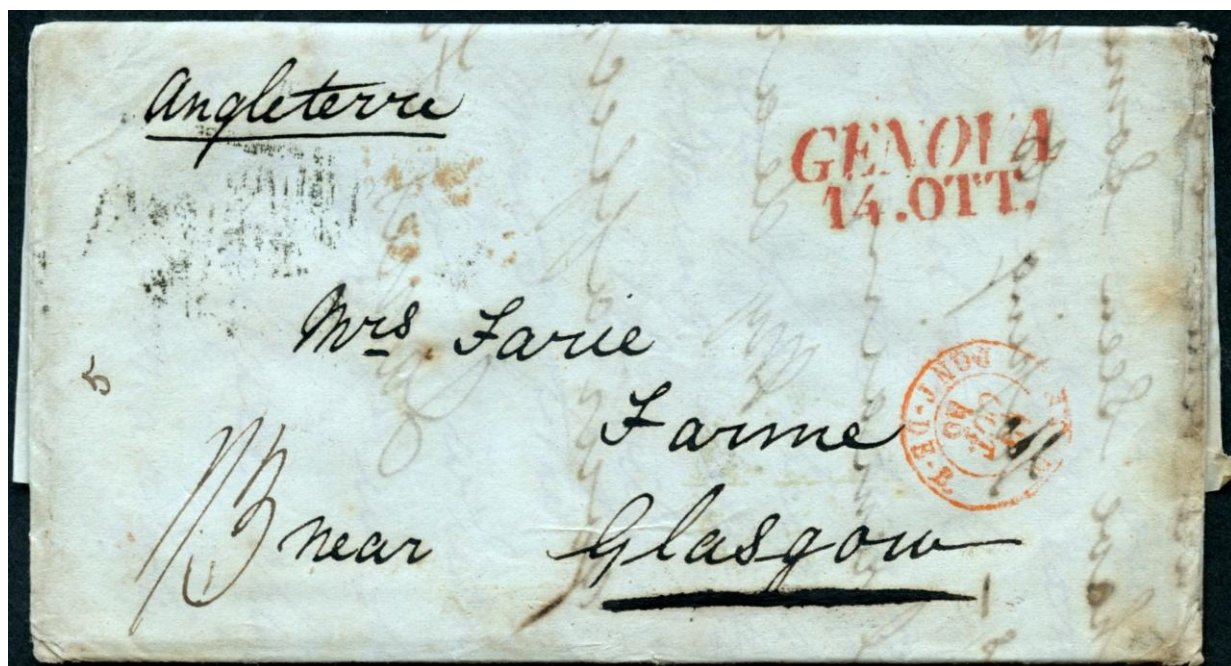 Angleterre
GENOVA
14.OTT.
Mrs Farie
5
Farme
1/3 near Glasgow
PONT-DE-B